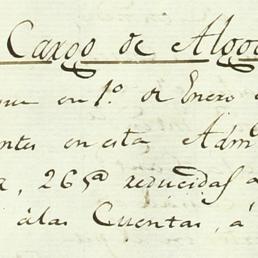 Cargo de Algo
en 1º. de Enero
ntes en esta Adm
, 265@ reducidas a
á las Cuentas, á